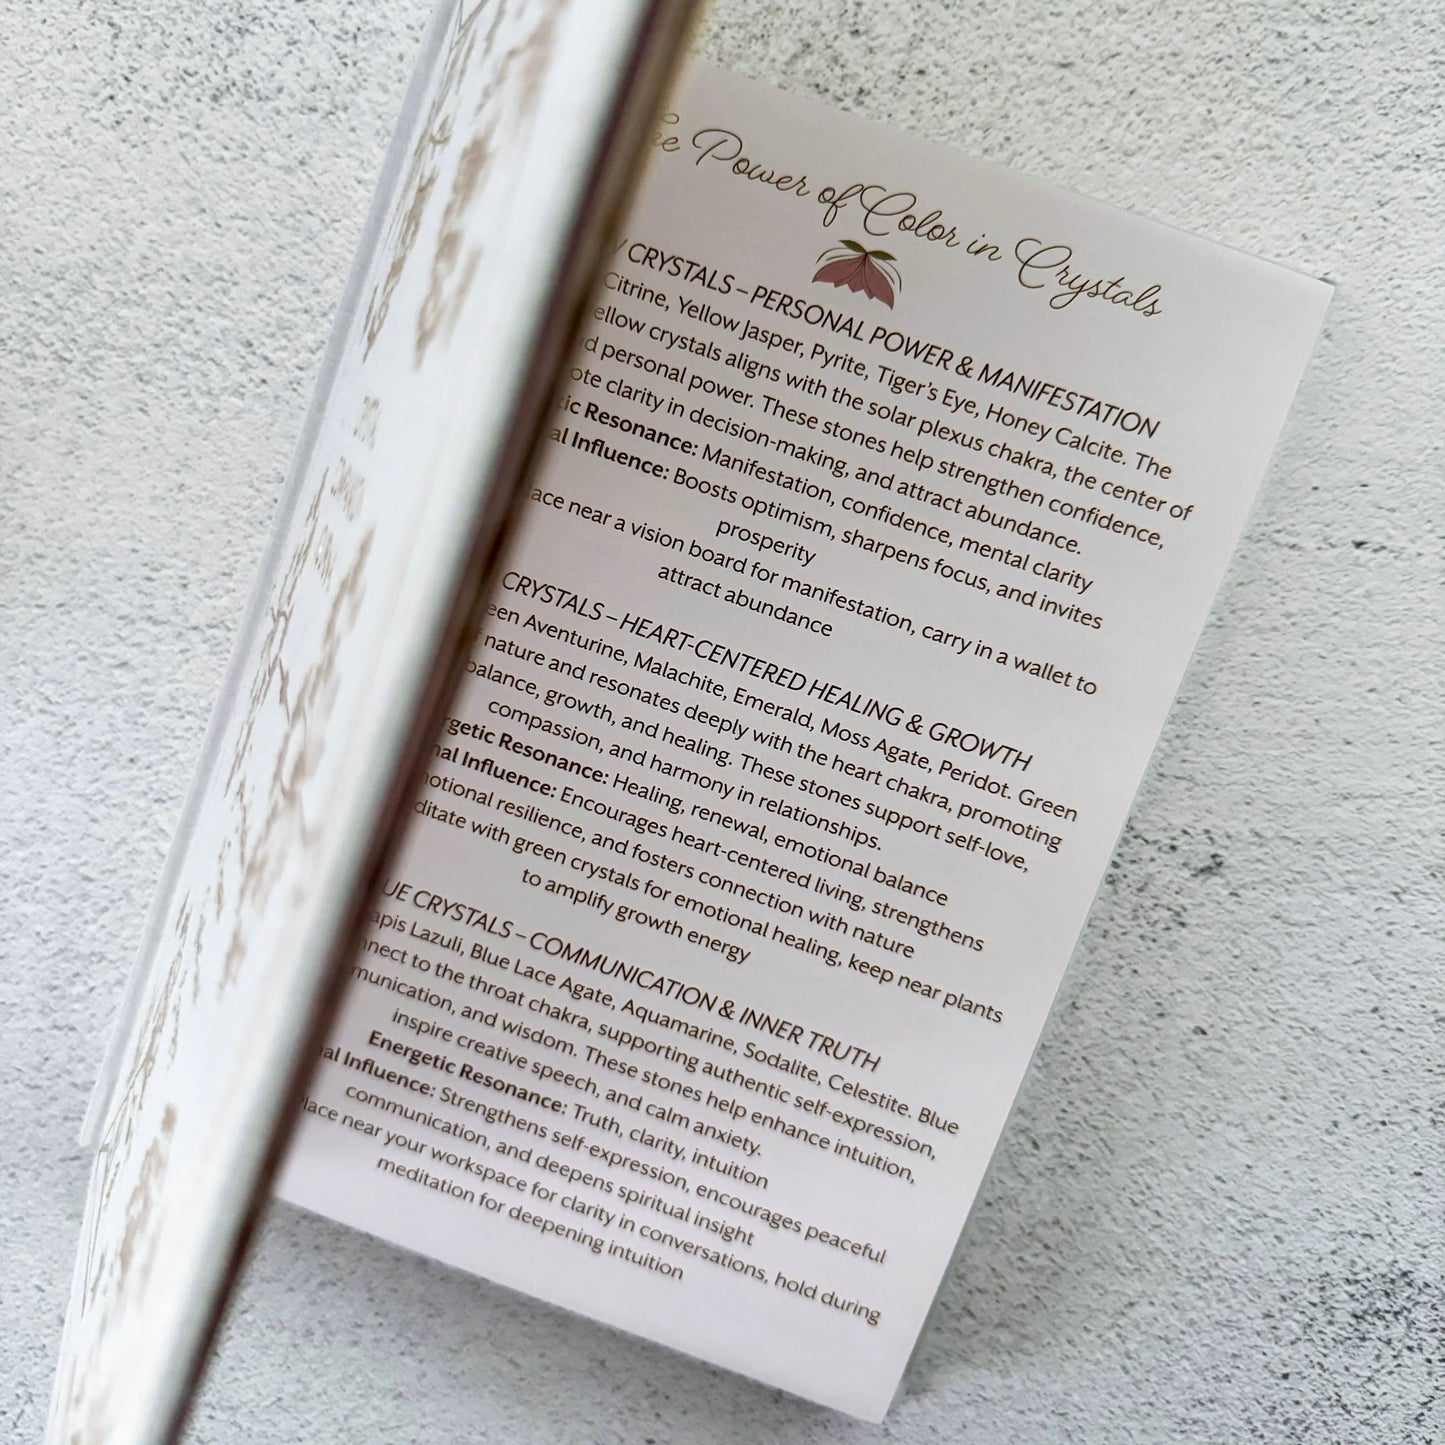 Power of Color in Crystals
CRYSTALS – PERSONAL POWER & MANIFESTATION
Citrine, Yellow Jasper, Pyrite, Tiger's Eye, Honey Calcite. The
crystals aligns with the solar plexus chakra, the center of
personal power. These stones help strengthen confidence,
clarity in decision-making, and attract abundance.
Resonance: Manifestation, confidence, mental clarity
Influence: Boosts optimism, sharpens focus, and invites
prosperity
near a vision board for manifestation, carry in a wallet to
attract abundance
CRYSTALS – HEART-CENTERED HEALING & GROWTH
Aventurine, Malachite, Emerald, Moss Agate, Peridot. Green
nature and resonates deeply with the heart chakra, promoting
balance, growth, and healing. These stones support self-love,
compassion, and harmony in relationships.
Resonance: Healing, renewal, emotional balance
Influence: Encourages heart-centered living, strengthens
resilience, and fosters connection with nature
with green crystals for emotional healing, keep near plants
to amplify growth energy
CRYSTALS – COMMUNICATION & INNER TRUTH
Lazuli, Blue Lace Agate, Aquamarine, Sodalite, Celestite. Blue
to the throat chakra, supporting authentic self-expression,
and wisdom. These stones help enhance intuition,
inspire creative speech, and calm anxiety.
Energetic Resonance: Truth, clarity, intuition
Influence: Strengthens self-expression, encourages peaceful
communication, and deepens spiritual insight
near your workspace for clarity in conversations, hold during
meditation for deepening intuition